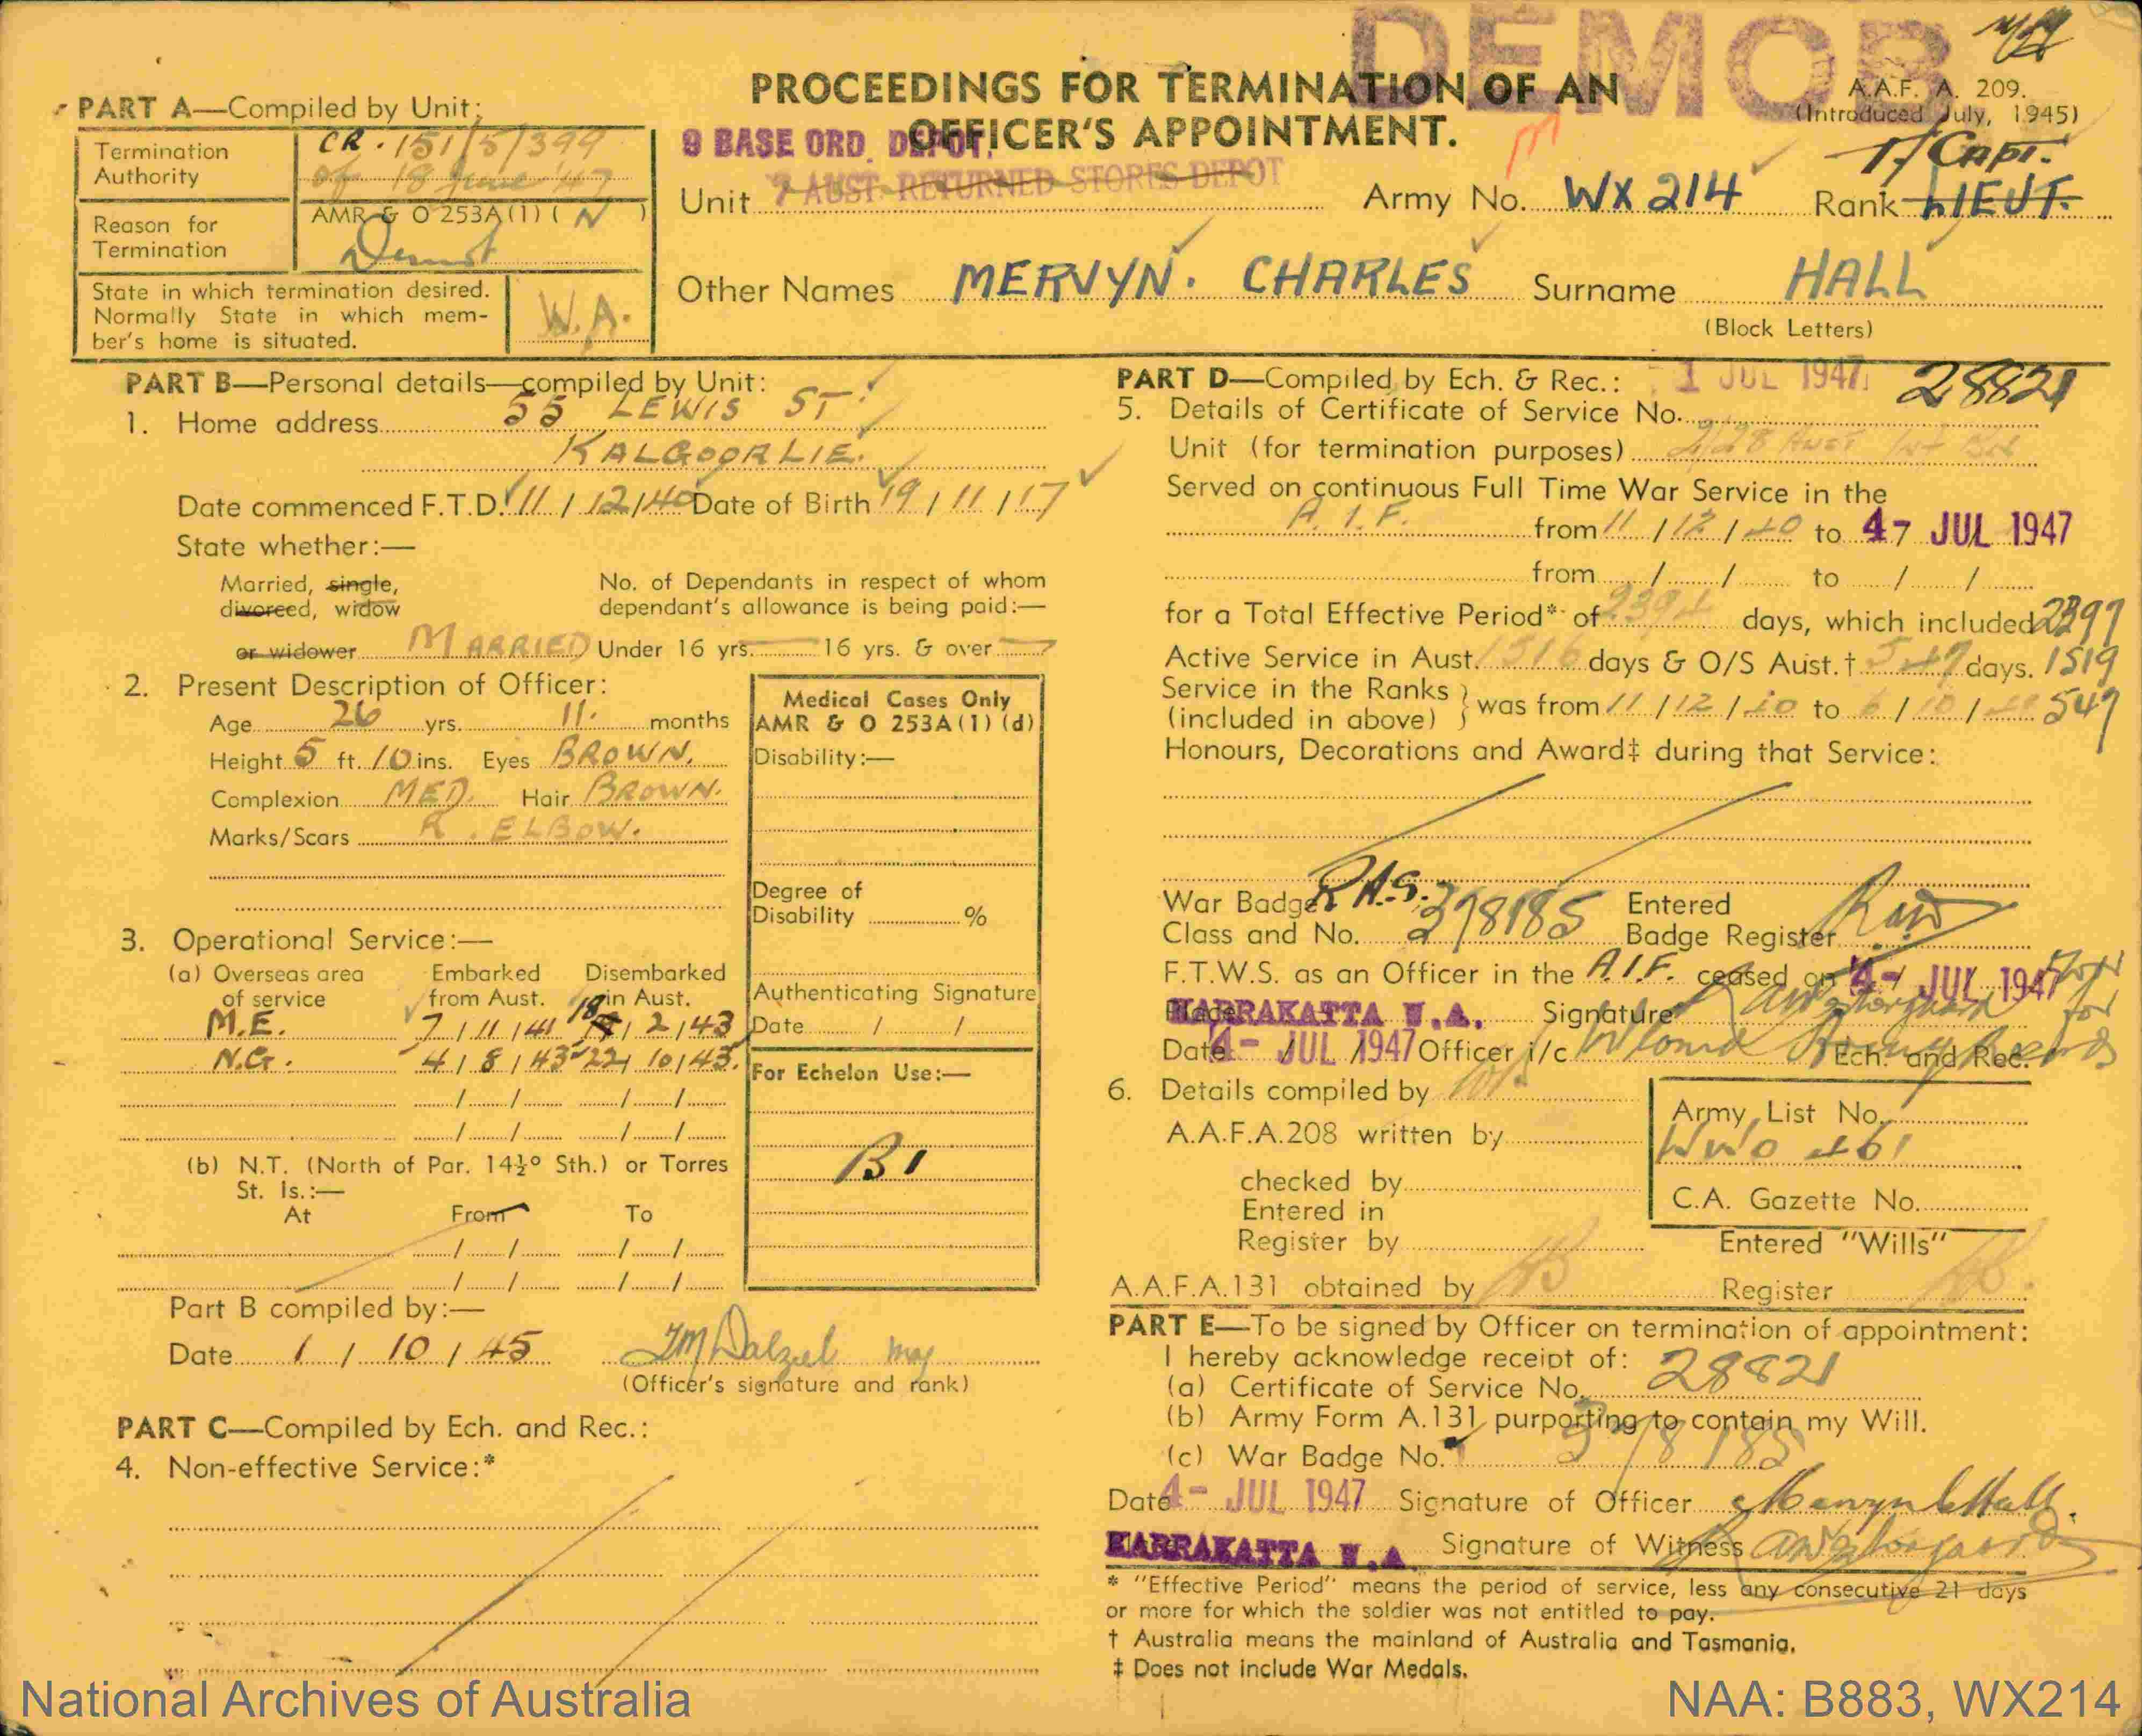 DEMOB
PROCEEDINGS FOR TERMINATION OF AN
OFFICER'S APPOINTMENT.
A.A.F. A. 209.
(Introduced July, 1945)
PART A—Compiled by Unit:
Termination Authority CR. 151/5/399 of 18 June '47
Reason for Termination AMR & O 253A(1) ( N )
Demob
State in which termination desired.
Normally State in which mem-
ber's home is situated.
W.A.
9 BASE ORD. DEPOT.
Unit 7 AUST. RETURNED STORES DEPOT
Army No. WX 214
T/Capt.
Rank LIEUT.
Other Names MERVYN. CHARLES Surname HALL
(Block Letters)
PART B—Personal details—compiled by Unit:
1. Home address 55 LEWIS ST.
KALGOORLIE.
Date commenced F.T.D. 11 / 12 / 40 Date of Birth 19 / 11 / 17
State whether:—
Married, single,
divorced, widow
or widower MARRIED
No. of Dependants in respect of whom
dependant's allowance is being paid:—
Under 16 yrs. — 16 yrs. & over —
2. Present Description of Officer:
Age 26 yrs. 11. months
Height 5 ft. 10 ins. Eyes BROWN.
Complexion MED. Hair BROWN.
Marks/Scars R. ELBOW.
Medical Cases Only
AMR & O 253A(1) (d)
Disability:—
Degree of
Disability %
Authenticating Signature
Date / /
For Echelon Use:—
B1
3. Operational Service:—
(a) Overseas area of service
Embarked from Aust.
Disembarked in Aust.
M.E. 7 / 11 / 41 18 / 2 / 43
N.G. 4 / 8 / 43 22 / 10 / 45.
(b) N.T. (North of Par. 14½° Sth.) or Torres
St. Is.:—
At From To
Part B compiled by:—
Date 1 / 10 / 45 Dalziel Maj
(Officer's signature and rank)
PART C—Compiled by Ech. and Rec.:
4. Non-effective Service:*
PART D—Compiled by Ech. & Rec.: 1 JUL 1947
5. Details of Certificate of Service No. 28821
Unit (for termination purposes) 2/28 Aust Inf Bn
Served on continuous Full Time War Service in the
A.I.F. from 11 / 12 / 40 to 4 7 JUL 1947
from / / to / /
for a Total Effective Period* of days, which included 2397
Active Service in Aust. 1516 days & O/S Aust.† 547 days. 1519
Service in the Ranks
(included in above) } was from 11 / 12 / 40 to 6 / 10 / 547
Honours, Decorations and Award‡ during that Service:
War Badge R.A.S.
Class and No. 378185
Entered
Badge Register
F.T.W.S. as an Officer in the A.I.F. ceased on 4 - JUL 1947
Place KARRAKATTA W.A. Signature
for
Date 4 - JUL 1947 Officer i/c Records Ech. and Rec.
6. Details compiled by
A.A.F.A.208 written by
checked by
Entered in
Register by
A.A.F.A.131 obtained by
Army List No.
C.A. Gazette No.
Entered "Wills"
Register
PART E—To be signed by Officer on termination of appointment:
I hereby acknowledge receipt of:
(a) Certificate of Service No. 28821
(b) Army Form A.131 purporting to contain my Will.
(c) War Badge No. 378185
Date 4 - JUL 1947 Signature of Officer Mervyn C Hall.
KARRAKATTA W.A. Signature of Witness
* "Effective Period" means the period of service, less any consecutive 21 days
or more for which the soldier was not entitled to pay.
† Australia means the mainland of Australia and Tasmania.
‡ Does not include War Medals.
National Archives of Australia
NAA: B883, WX214